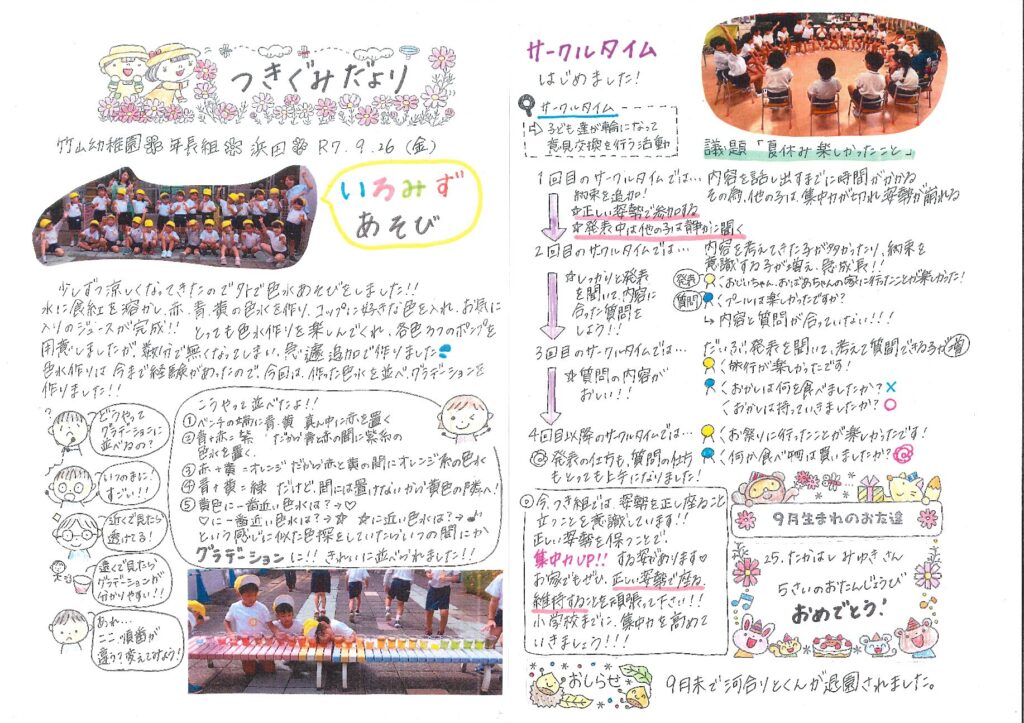 つきぐみだより
竹山幼稚園 年長組 浜田 R7.9.26(金)
いろみず
あそび
少しずつ涼しくなってきたので外で色水あそびをしました!!
水に食紅を溶かし、赤、青、黄の色水を作り、コップに好きな色を入れ、お気に
入りのジュースが完成!! とっても色水作りを楽しんでくれ、各色3つのポンプを
用意しましたが、数分で無くなってしまい、急遽追加で作りました
色水作りは今まで経験があったので、今回は、作った色水を並べ、グラデーションを
作りました!!
どうやって
グラデーションに
並べるの?
いつのまに!
すごい!!
近くで見たら
透けてる!
遠くで見たら
グラデーションが
分かりやすい!!
あれ…
ここ順番が
違う?変えてみよう!
こうやって並べたよ!!
①ベンチの端に青、黄 真ん中に赤を置く
②青+赤=紫 だから青と赤の間に紫系の
色水を置く
③赤+黄=オレンジ だから赤と黄の間にオレンジ系の色水
④青+黄=緑 だけど、間には置けないから黄色の隣へ!
⑤黄色に一番近い色水は?→♡
♡に一番近い色水は?→☆ ☆に近い色水は?→♪
という感じに似た色探をしていたらいつの間にか
グラデーションに!! きれいに並べられました!!
サークルタイム
はじめました!
サークルタイム
→子ども達が輪になって
意見交換を行う活動
議題「夏休み楽しかったこと」
1回目のサークルタイムでは… 内容を話し出すまでに時間がかかる
その間、他の子は集中力が切れ姿勢が崩れる
約束を追加!
☆正しい姿勢で参加する
☆発表中は他の子は静かに聞く
2回目のサークルタイムでは… 内容を考えてきた子が多かったり、約束を
意識する子が増え、急成長!!
☆しっかりと発表
を聞いて、内容に
合った質問を
しよう!!
発表 くおじいちゃん、おばあちゃんの家に行ったことが楽しかった!
質問 くプールは楽しかったですか?
↳内容と質問が合っていない!!!
3回目のサークルタイムでは… だいぶ発表を聞いて、考えて質問できる子が増
☆質問の内容が
おしい!!
く旅行が楽しかったです!
くおかしは何を食べましたか?×
くおかしは持っていきましたか?○
4回目以降のサークルタイムでは… くお祭りに行ったことが楽しかったです!
発表の仕方も、質問の仕方
もとっても上手になりました!
く何か食べ物は買いましたか?
◎今、つき組では、姿勢を正し座ること
立つことを意識しています!!
正しい姿勢を保つことで、
集中力UP!! する姿があります♡
お家でもぜひ、正しい姿勢で座る、
維持することを頑張って下さい!!
小学校までに、集中力を高めて
いきましょう!!
9月生まれのお友達
25.たかはし みゆきさん
5さいのおたんじょうび
おめでとう!
おしらせ
9月末で河合りとくんが退園されました。